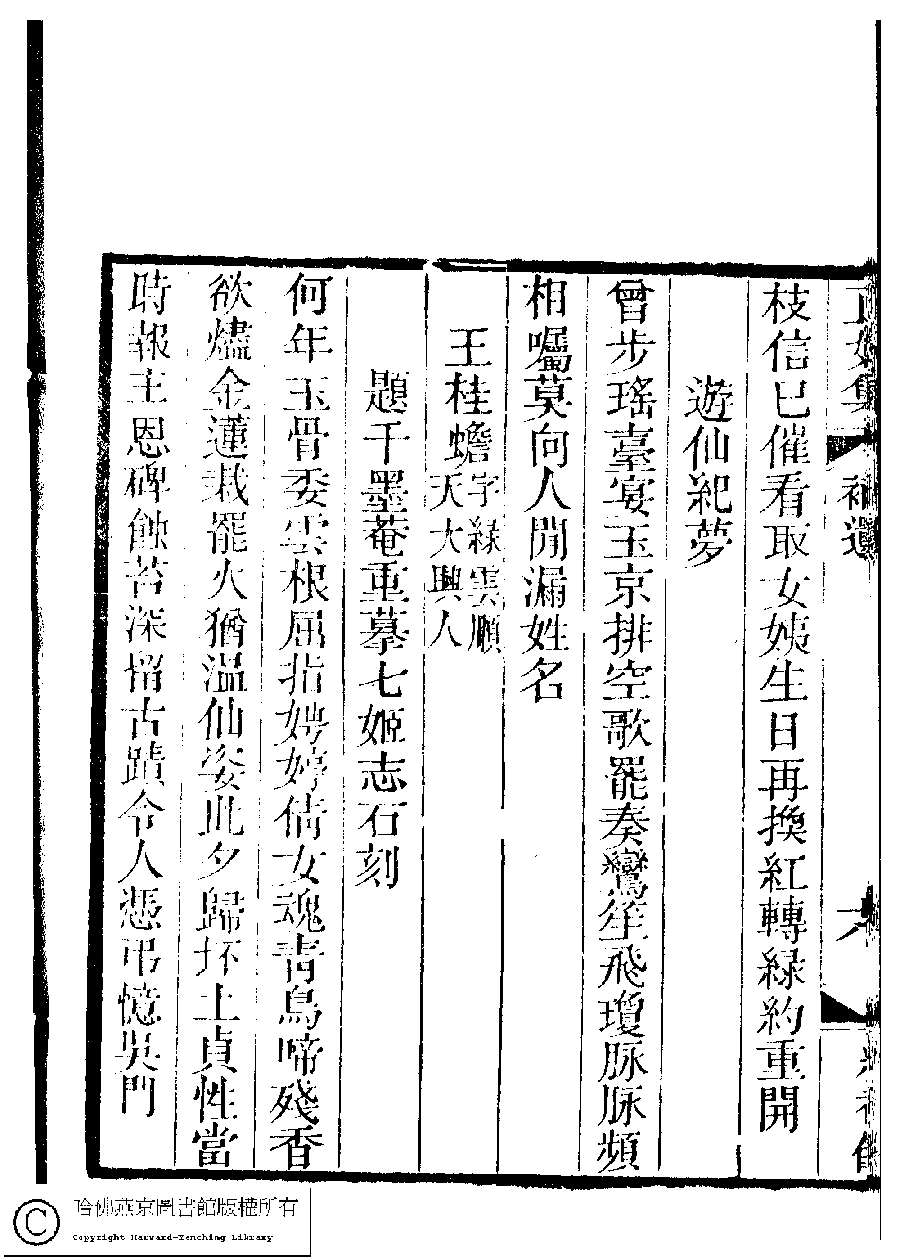 枝信已催看取女姨生日再換紅轉緑約重開
遊仙紀夢
曾步瑤臺宴玉京排空歌罷奏鸞笙飛瓊脉脉頻
相囑莫向人間漏姓名
王桂蟾字緑雲順天大興人
題千墨菴重摹七姬志石刻
何年玉骨委雲根屈指娉婷倩女魂青鳥啼殘香
欲燼金蓮栽罷火猶溫仙姿此夕歸抔土貞性當
時報主恩碑蝕苔深留古蹟令人憑弔憶吳門
哈佛燕京圖書館版權所有
Copyright Harvard-Yenching Library